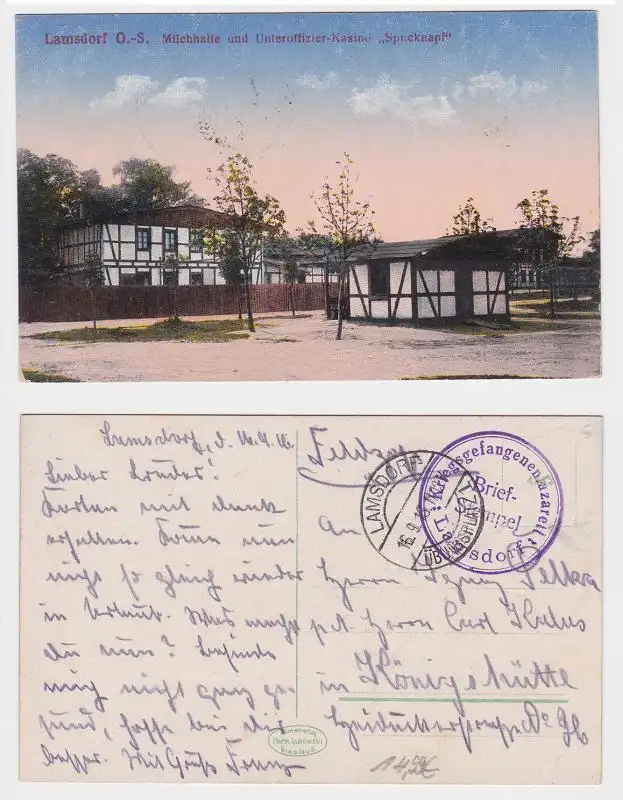 Lamsdorf O.-S. Milchhalle und Unteroffizier-Kasino „Spucknapf“
Lamsdorf, d. 16.9.16.
Lieber Bruder!
Karten mit dank
erhalten. Kann nun
nicht so gleich wieder
in Urlaub. Was macht
du nun? befinde
mig nicht ganz ge-
sund, hoffe bei dir
besser. Mit Gruß Franz
LAMSDORF
16.9.16
ÜBUNGSPLATZ
Kriegsgefangenenlazarett
Brief-
Stempel
Lamsdorf
An
Herrn
p.A. Herrn Carl
in Königshütte
Kunstverlag
Herm. Lukowski
Breslau